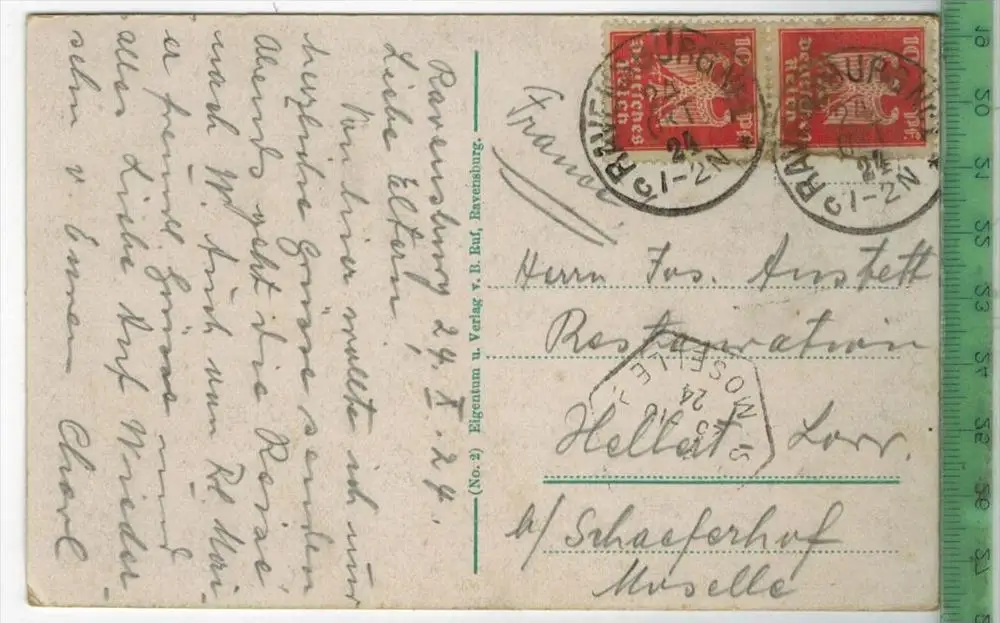 Ravensburg 24. X. 24.
Liebe Eltern,
Von hier wollte ich nur
herzliche Grüsse senden
Abends geht die Reise
nach W. Auch von
er freundl. Grüsse und
alles Liebe Auf Wieder-
sehn v Eurem Charl
(No. 2) Eigentum u. Verlag v. B. Ruf, Ravensburg.
France
10 Pf
Deutsches
Reich
10 Pf
Deutsches
Reich
RAVENSBURG
OKT
24
1-2N
RAVENSBURG
OKT
24
1-2N
Herrn Jos. Anstett
Restauration
Hellert Lorr.
b/ Schaeferhof
Moselle
MOSELLE
24